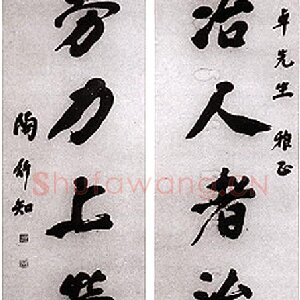 卓先生 雅正
治人者治
劳力上
陶行知
Shufawang.CN